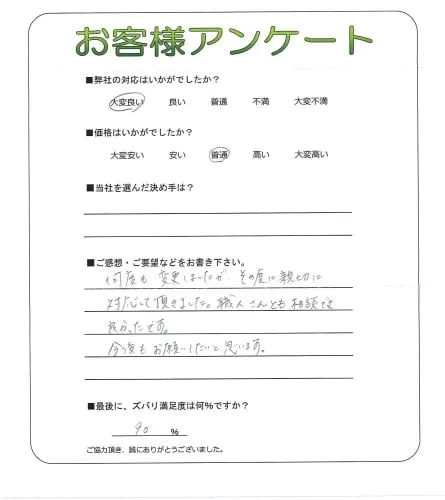 お客様アンケート
■弊社の対応はいかがでしたか？
大変良い 良い 普通 不満 大変不満
■価格はいかがでしたか？
大変安い 安い 普通 高い 大変高い
■当社を選んだ決め手は？
■ご感想・ご要望などをお書き下さい。
何度も変更しましたが、その度に親切に
対応して頂きました。職人さんとも相談でき
良かったです。
今後もお願いしたいと思います。
■最後に、ズバリ満足度は何％ですか？
90 ％
ご協力頂き、誠にありがとうございました。